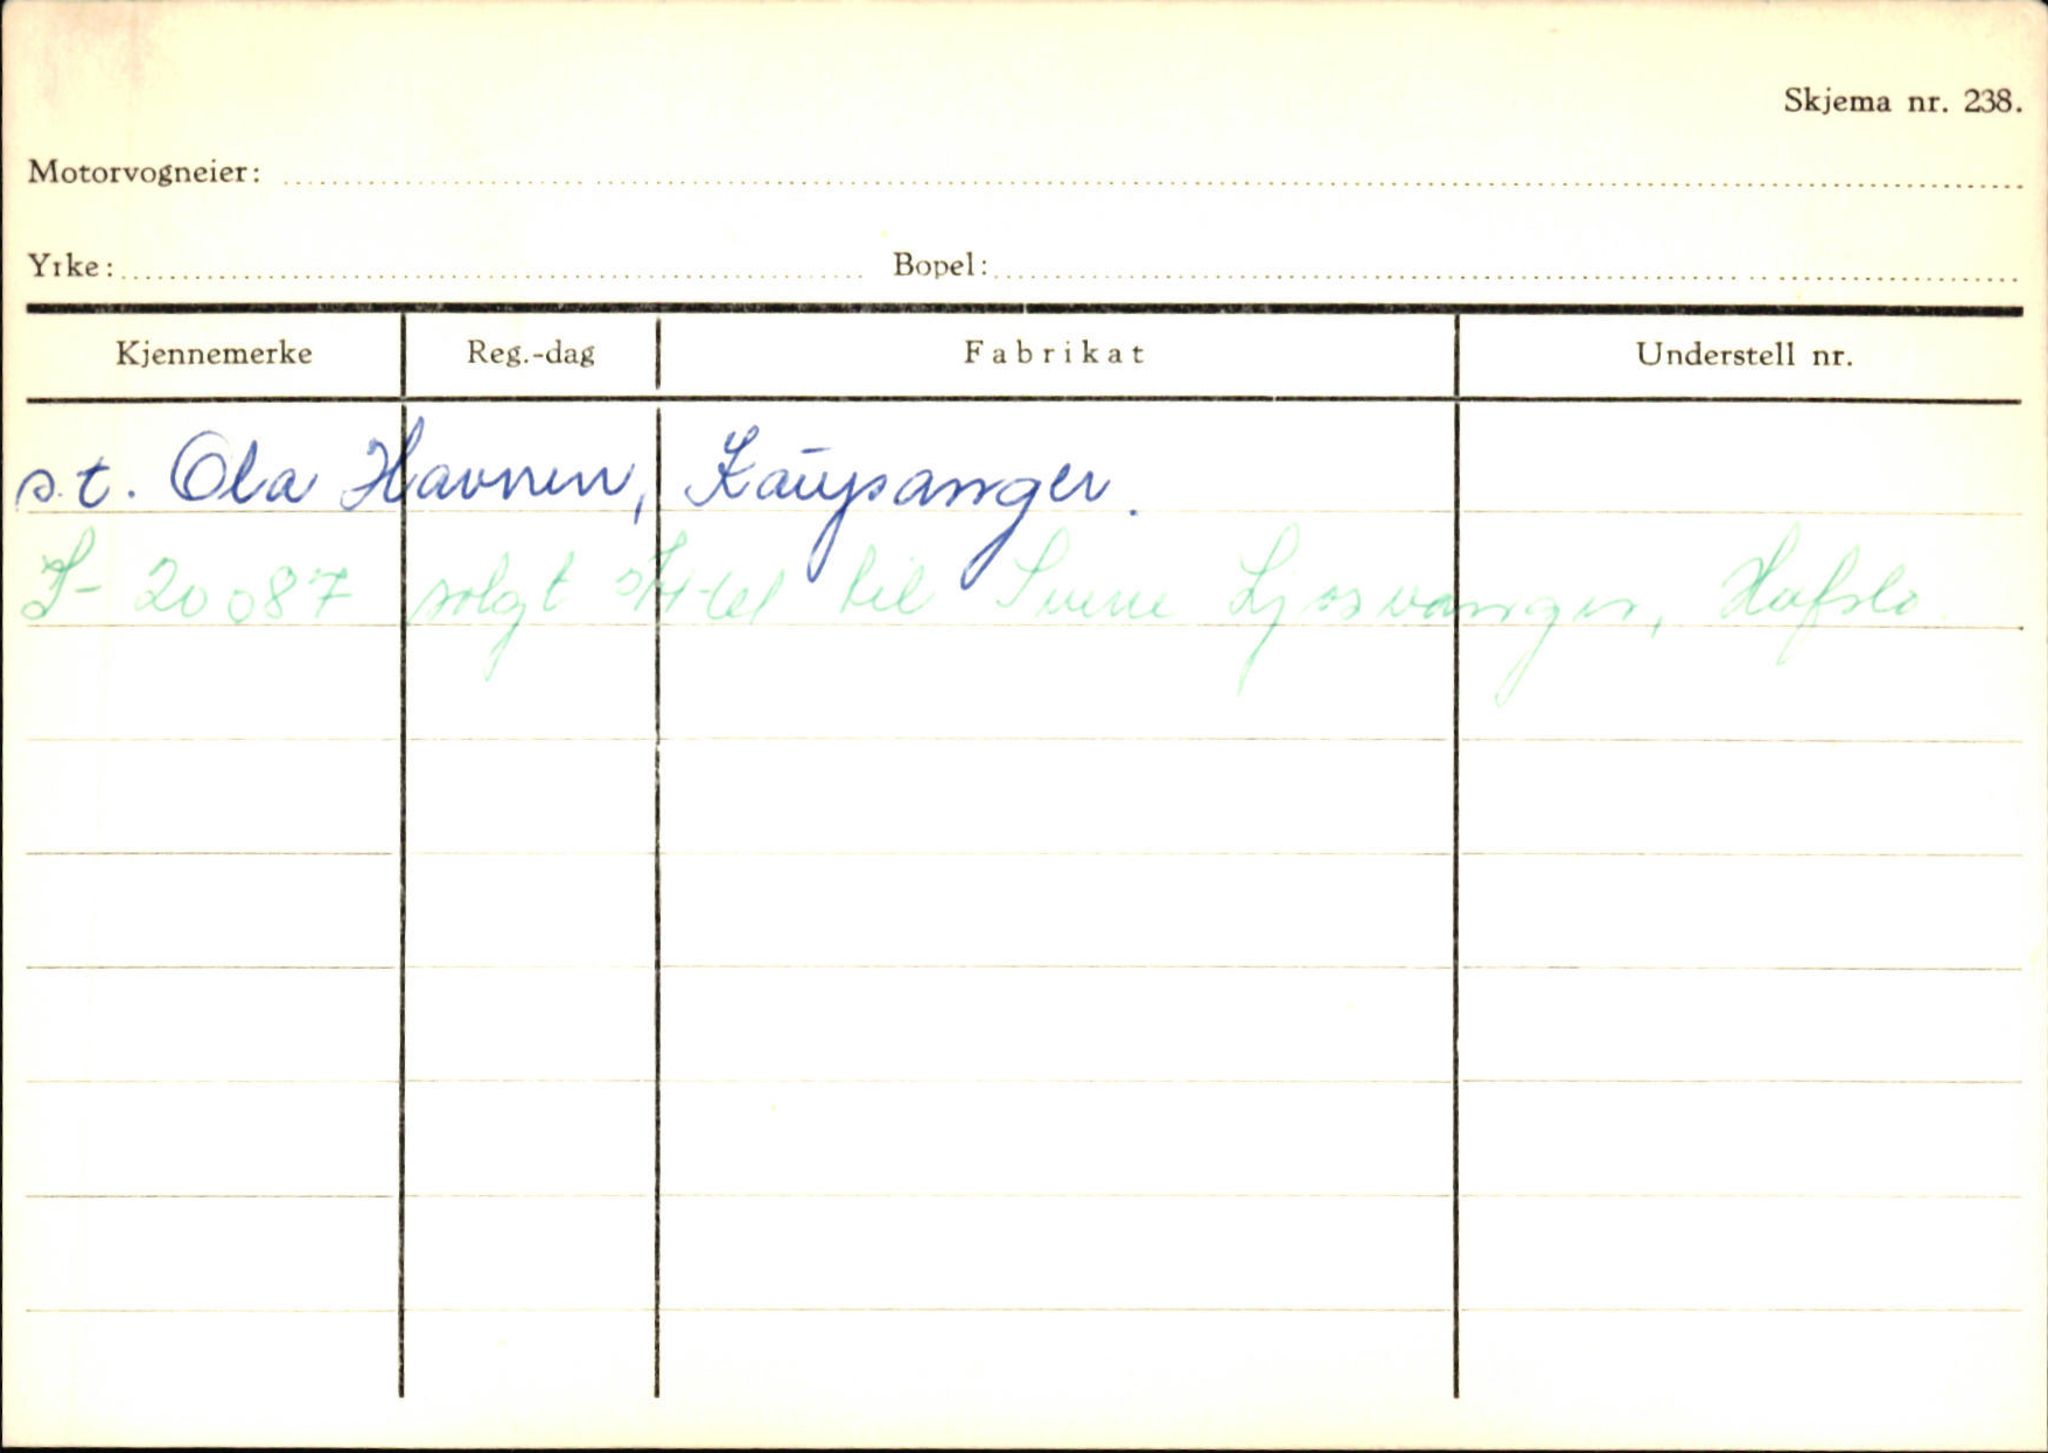 Skjema nr. 238.
Motorvogneier:
Yrke: Bopel:
Kjennemerke Reg.-dag Fabrikat Understell nr.
s.t. Ola Havnen, Kaupanger.
S-20087 solgt til Sverre Ljosvanger, Hafslo